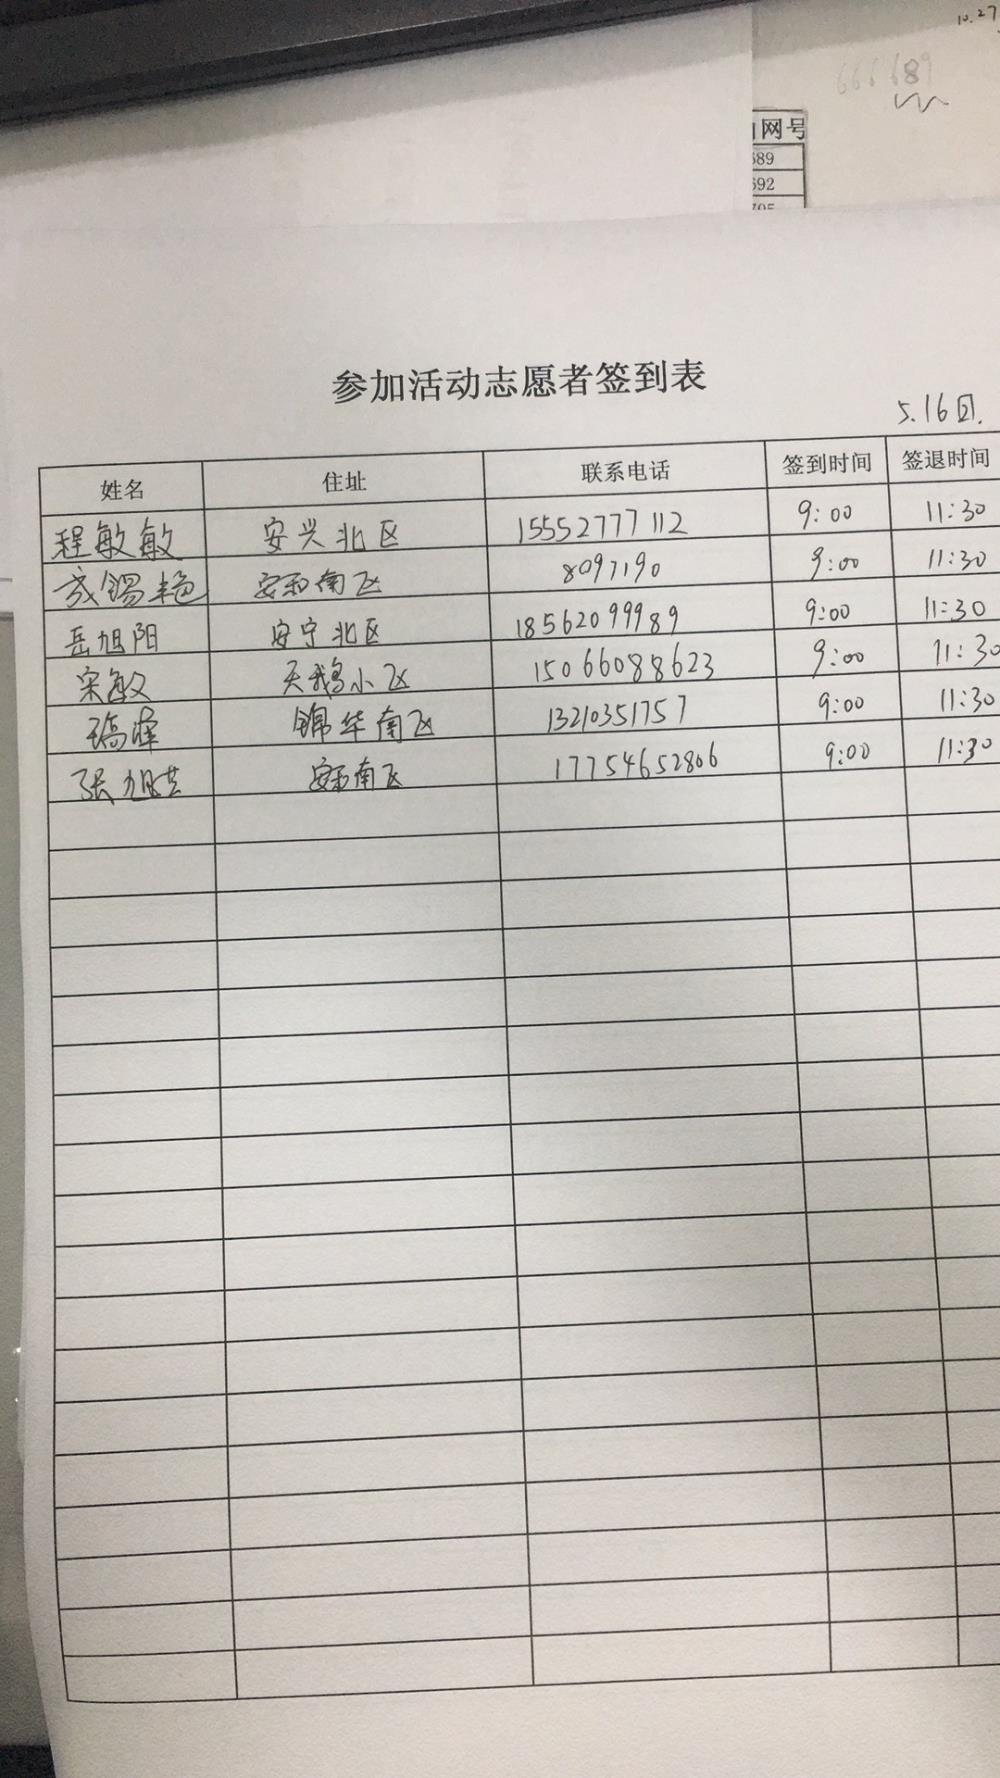 10.27
666689
网号
689
692
705
参加活动志愿者签到表
5.16日.
姓名 住址 联系电话 签到时间 签退时间
程敏敏 安兴北区 15552777112 9:00 11:30
成锡艳 安和南区 8097190 9:00 11:30
岳旭阳 安宁北区 18562099989 9:00 11:30
宋敏 天鹅小区 15066088623 9:00 11:30
锦华南区 13210351757 9:00 11:30
张旭芸 安和南区 17754652806 9:00 11:30